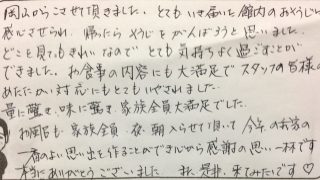 岡山からこさせて頂きました。とてもいき届いた館内のおそうじに
感心させられ、帰ったらそうじをがんばろうと思いました。
どこを見てもきれいなのでとても気持ちよく過ごすことが
できました。お食事の内容にも大満足でスタッフの皆様の
あたたかい対応にもとてもいやされました。
量に驚き、味に驚き、家族全員大満足でした。
お風呂も家族全員、夜・朝入らせて頂いて今年のお宿の
一番のよい思い出を作ることができたから感謝の思い一杯です
本当にありがとうございました。また、是非、来てみたいです♡